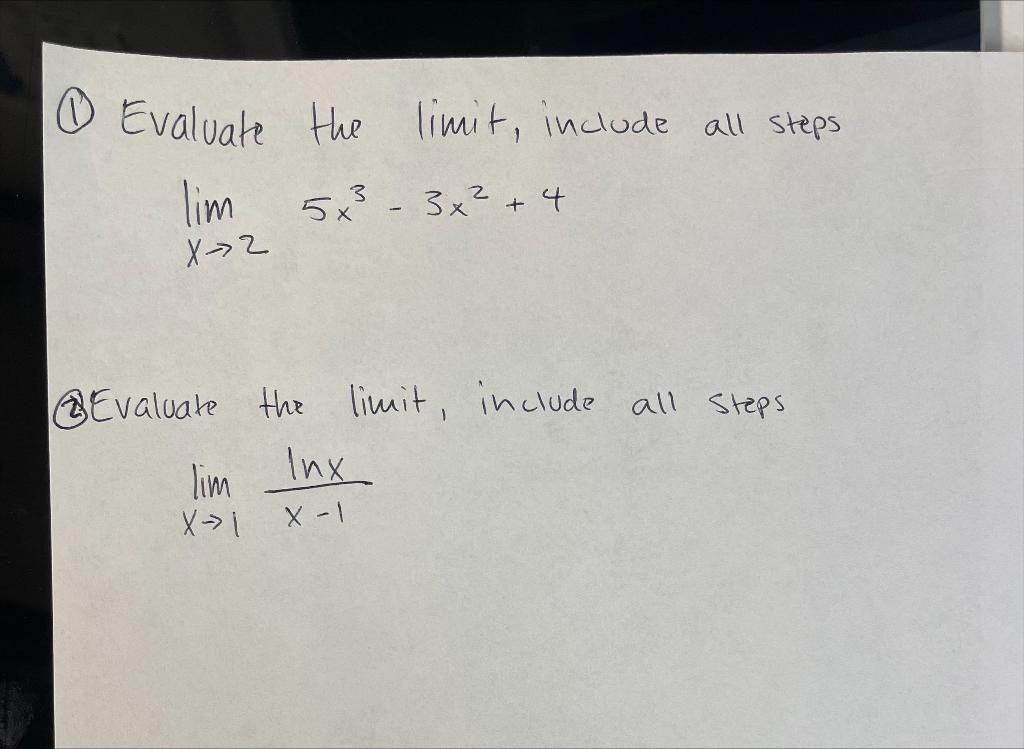 ① Evaluate the limit, include all steps
lim 5x³ - 3x² + 4
x→2
② Evaluate the limit, include all steps
lim lnx
x→1 x-1